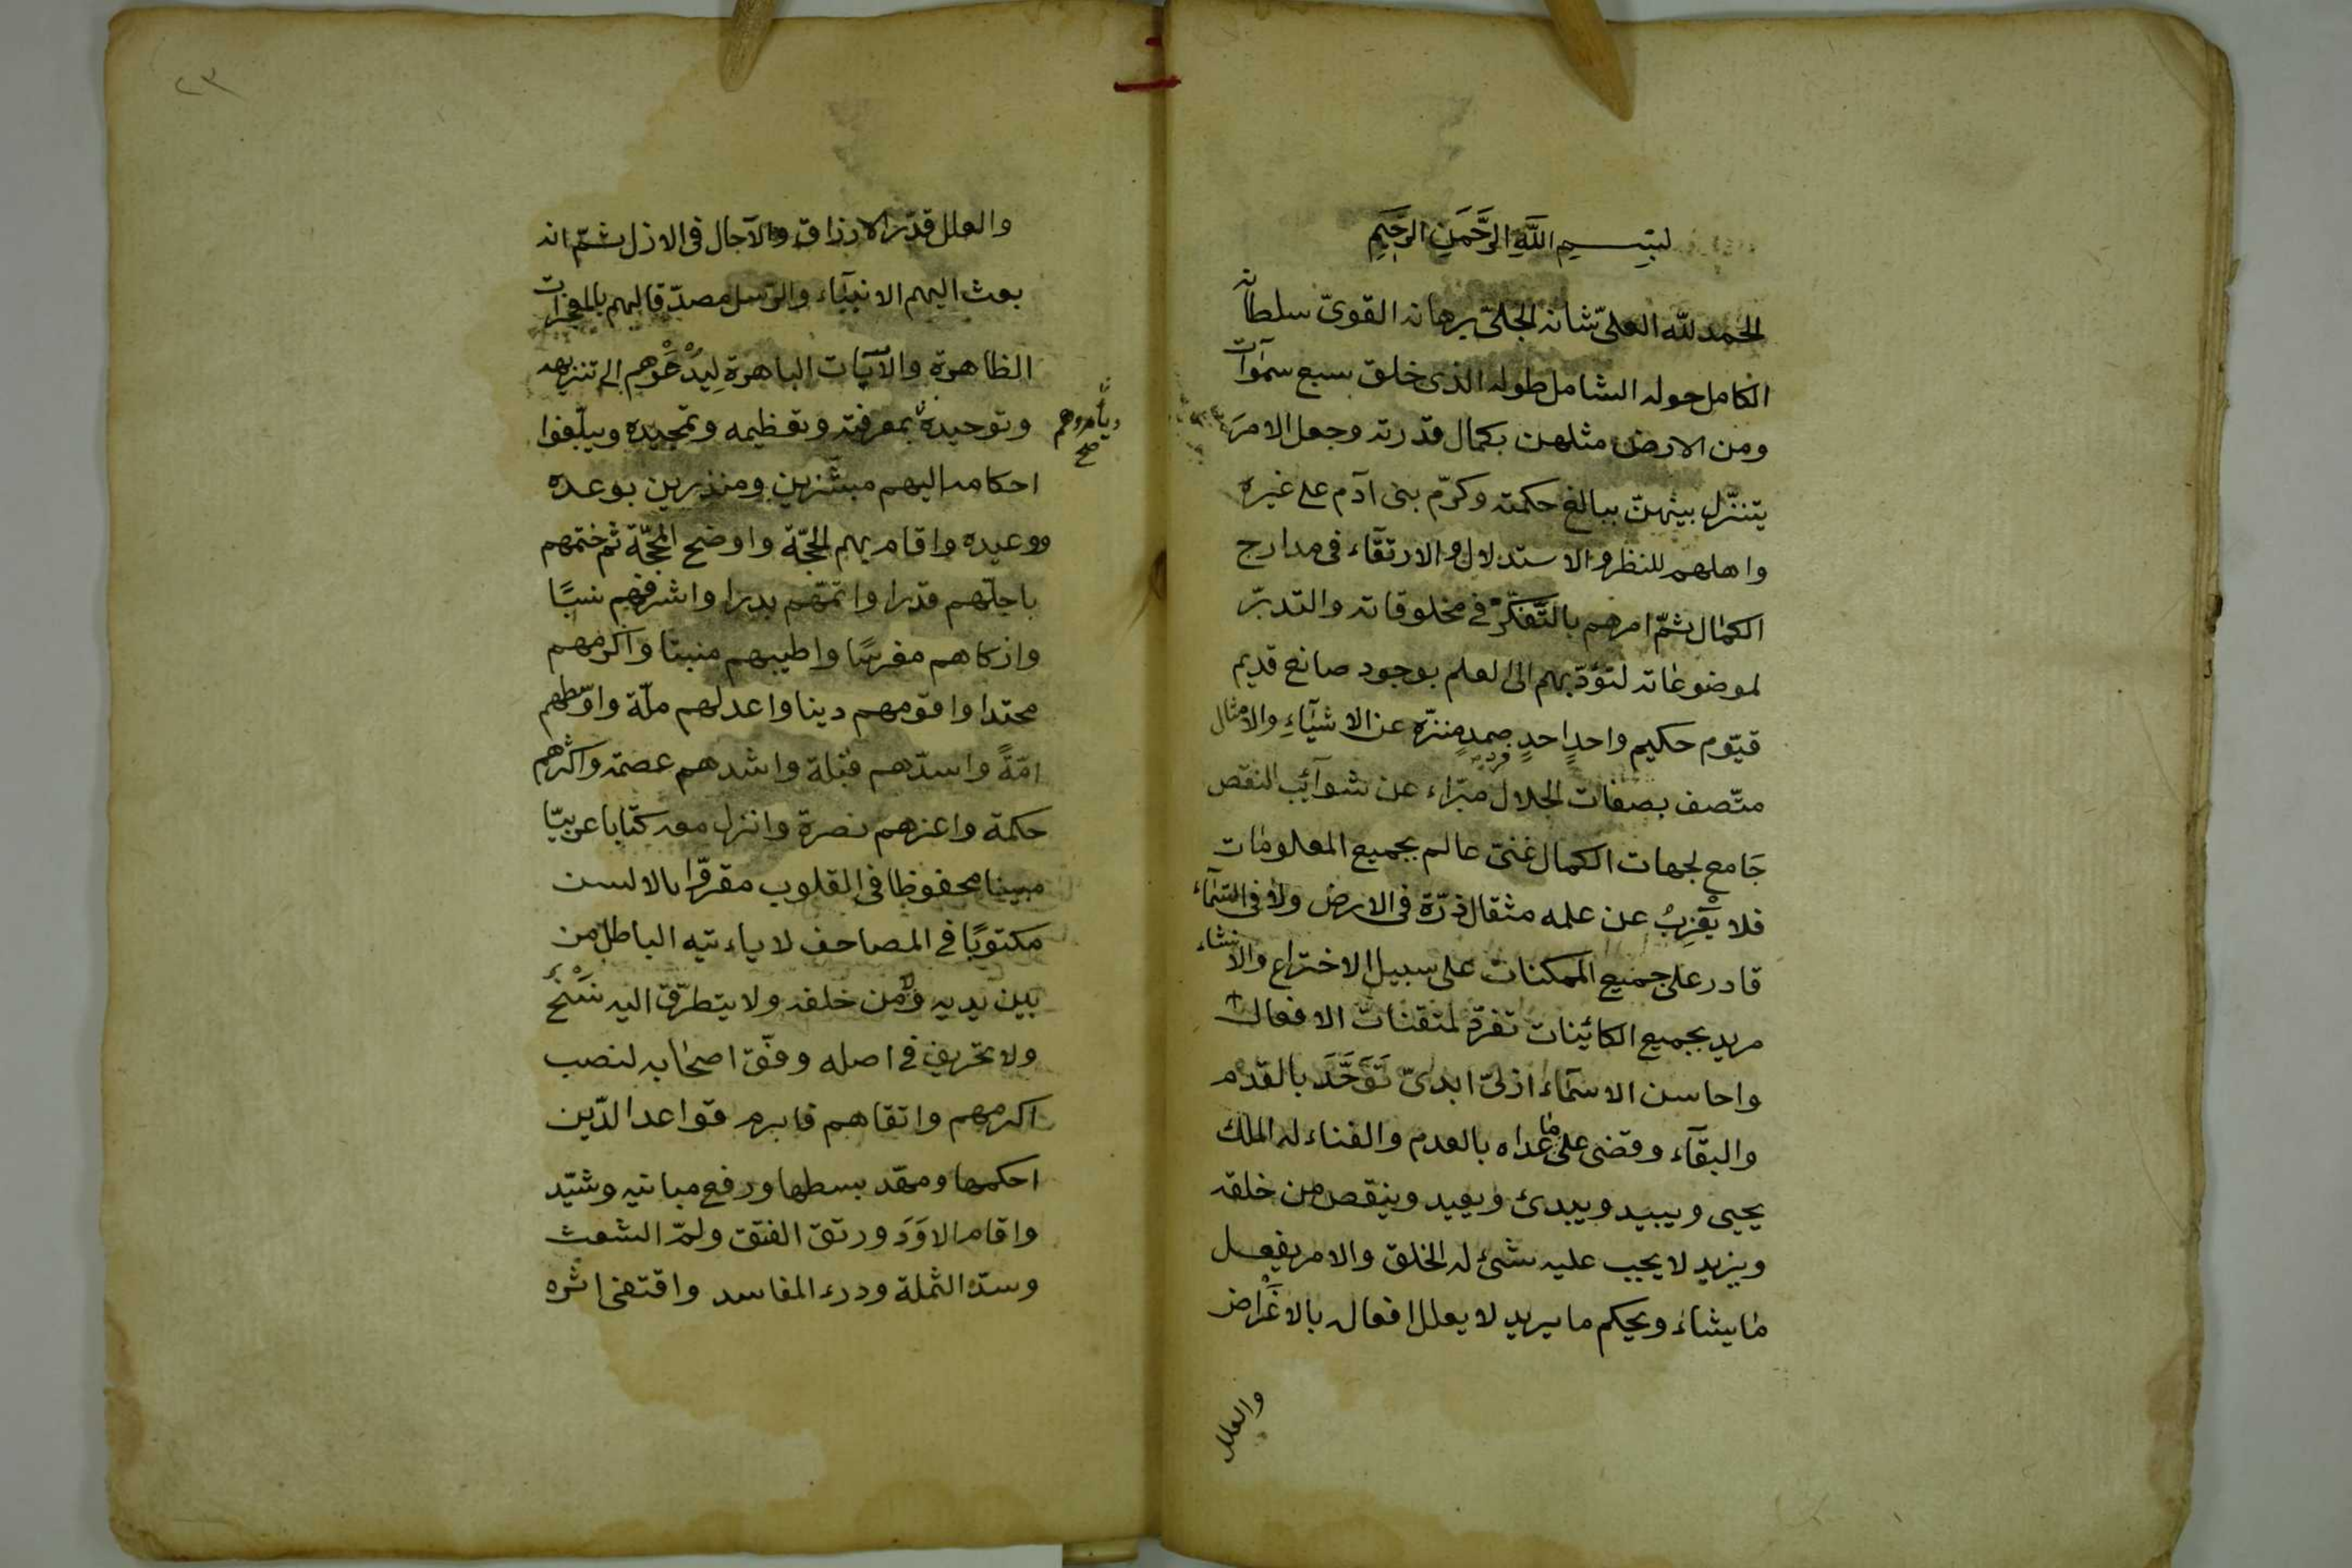 بسم الله الرَّحمَنِ الرَّحِيمِ
الحمد لله العلىّ شانه الجلىّ برهانه القوىّ سلطانه
الكامل حوله الشامل طوله الذى خلق سبع سمٰوات
ومن الارض مثلهن بكمال قدرته وجعل الامرَ
يتنزّل بينهنّ ببالغ حكمته وكرّم بنى آدم على غيره
واهلهم للنظر والاستدلال والارتقاء فى مدارج
الكمال ثمّ امرهم بالتَّفكّر فى مخلوقاته والتدبّر
لموضوعاته لتؤدّيهم الى العلم بوجود صانع قديم
قيّوم حكيم واحدٍ احدٍ صمدٍ منزّه عن الاشيآءِ والامثال
فرد
متّصف بصفات الجلال مبّراء عن شوآئب النقص
جَامع لجهات الكمال غنىّ عالم بجميع المعلومات
فلا يَعْزِبُ عن علمه مثقال ذرّة فى الارض ولا فى السّمآء
قادر على جميع الممكنات على سبيل الاختراع والانشاء
مريد بجميع الكائينات تفرّد لمتقنات الافعال
واحاسن الاسمآء ازلىّ ابدىّ تَوَحَّدَ بالقدم
والبقآء وقضى على ما عداه بالعدم والفناء له الملك
يحيى ويبيد ويبدئ ويعيد وينقص من خلقه
ويزيد لا يجب عليه شئ له الخلق والامر يفعل
مٰا يشاء ويحكم ما يريد لا يعلل افعاله بالاغْرَاض
والعلل
والعلل قدّر الارزاق والآجال فى الازل ثمّ انه
بعث اليهم الانبيآء والرّسل مصدّقا لهم بالمعجزات
الظاهرة والآيات الباهرة لِيَدْعُوْهم الى تنزيهه
وتوحيده بمعرفته وتعظيمه وتمجيده ويبلّغوا
ويأمروهم
صح
احكامه اليهم مبشّرين ومنذرين بوعده
ووعيده واقام بهم الحجّة واوضح المحجّة ثم ختمهم
باجلّهم قدرا واتمّهم بدرا واشرفهم نسبًا
وازكاهم مغرسًا واطيبهم منبتا واكرمهم
محتدا واقومهم دينا واعدلهم ملّة واوسطهم
امّةً واسدّهم قبلة واشدهم عصمة واكثرهم
حكمة واعزهم نصرة وانزل معه كتابا عربيّا
مبينا محفوظا فى القلوب مقرّوا بالالسن
مكتوبًا فى المصاحف لا ياءتيه الباطل من
بين يديه ولا من خلفه ولا يتطرّق اليه نَسْخٌ
ولا تحريف فى اصله وفّق اصحٰابه لنصب
اكرمهم واتقاهم فابرم قواعد الدّين
احكمها ومهّد بسطها ورفع مبانيه وشيّد
واقام الاوَدَ ورتق الفتق ولمّ الشعث
وسدّ الثملة ودرء المفاسد واقتفى اثره
٢٣